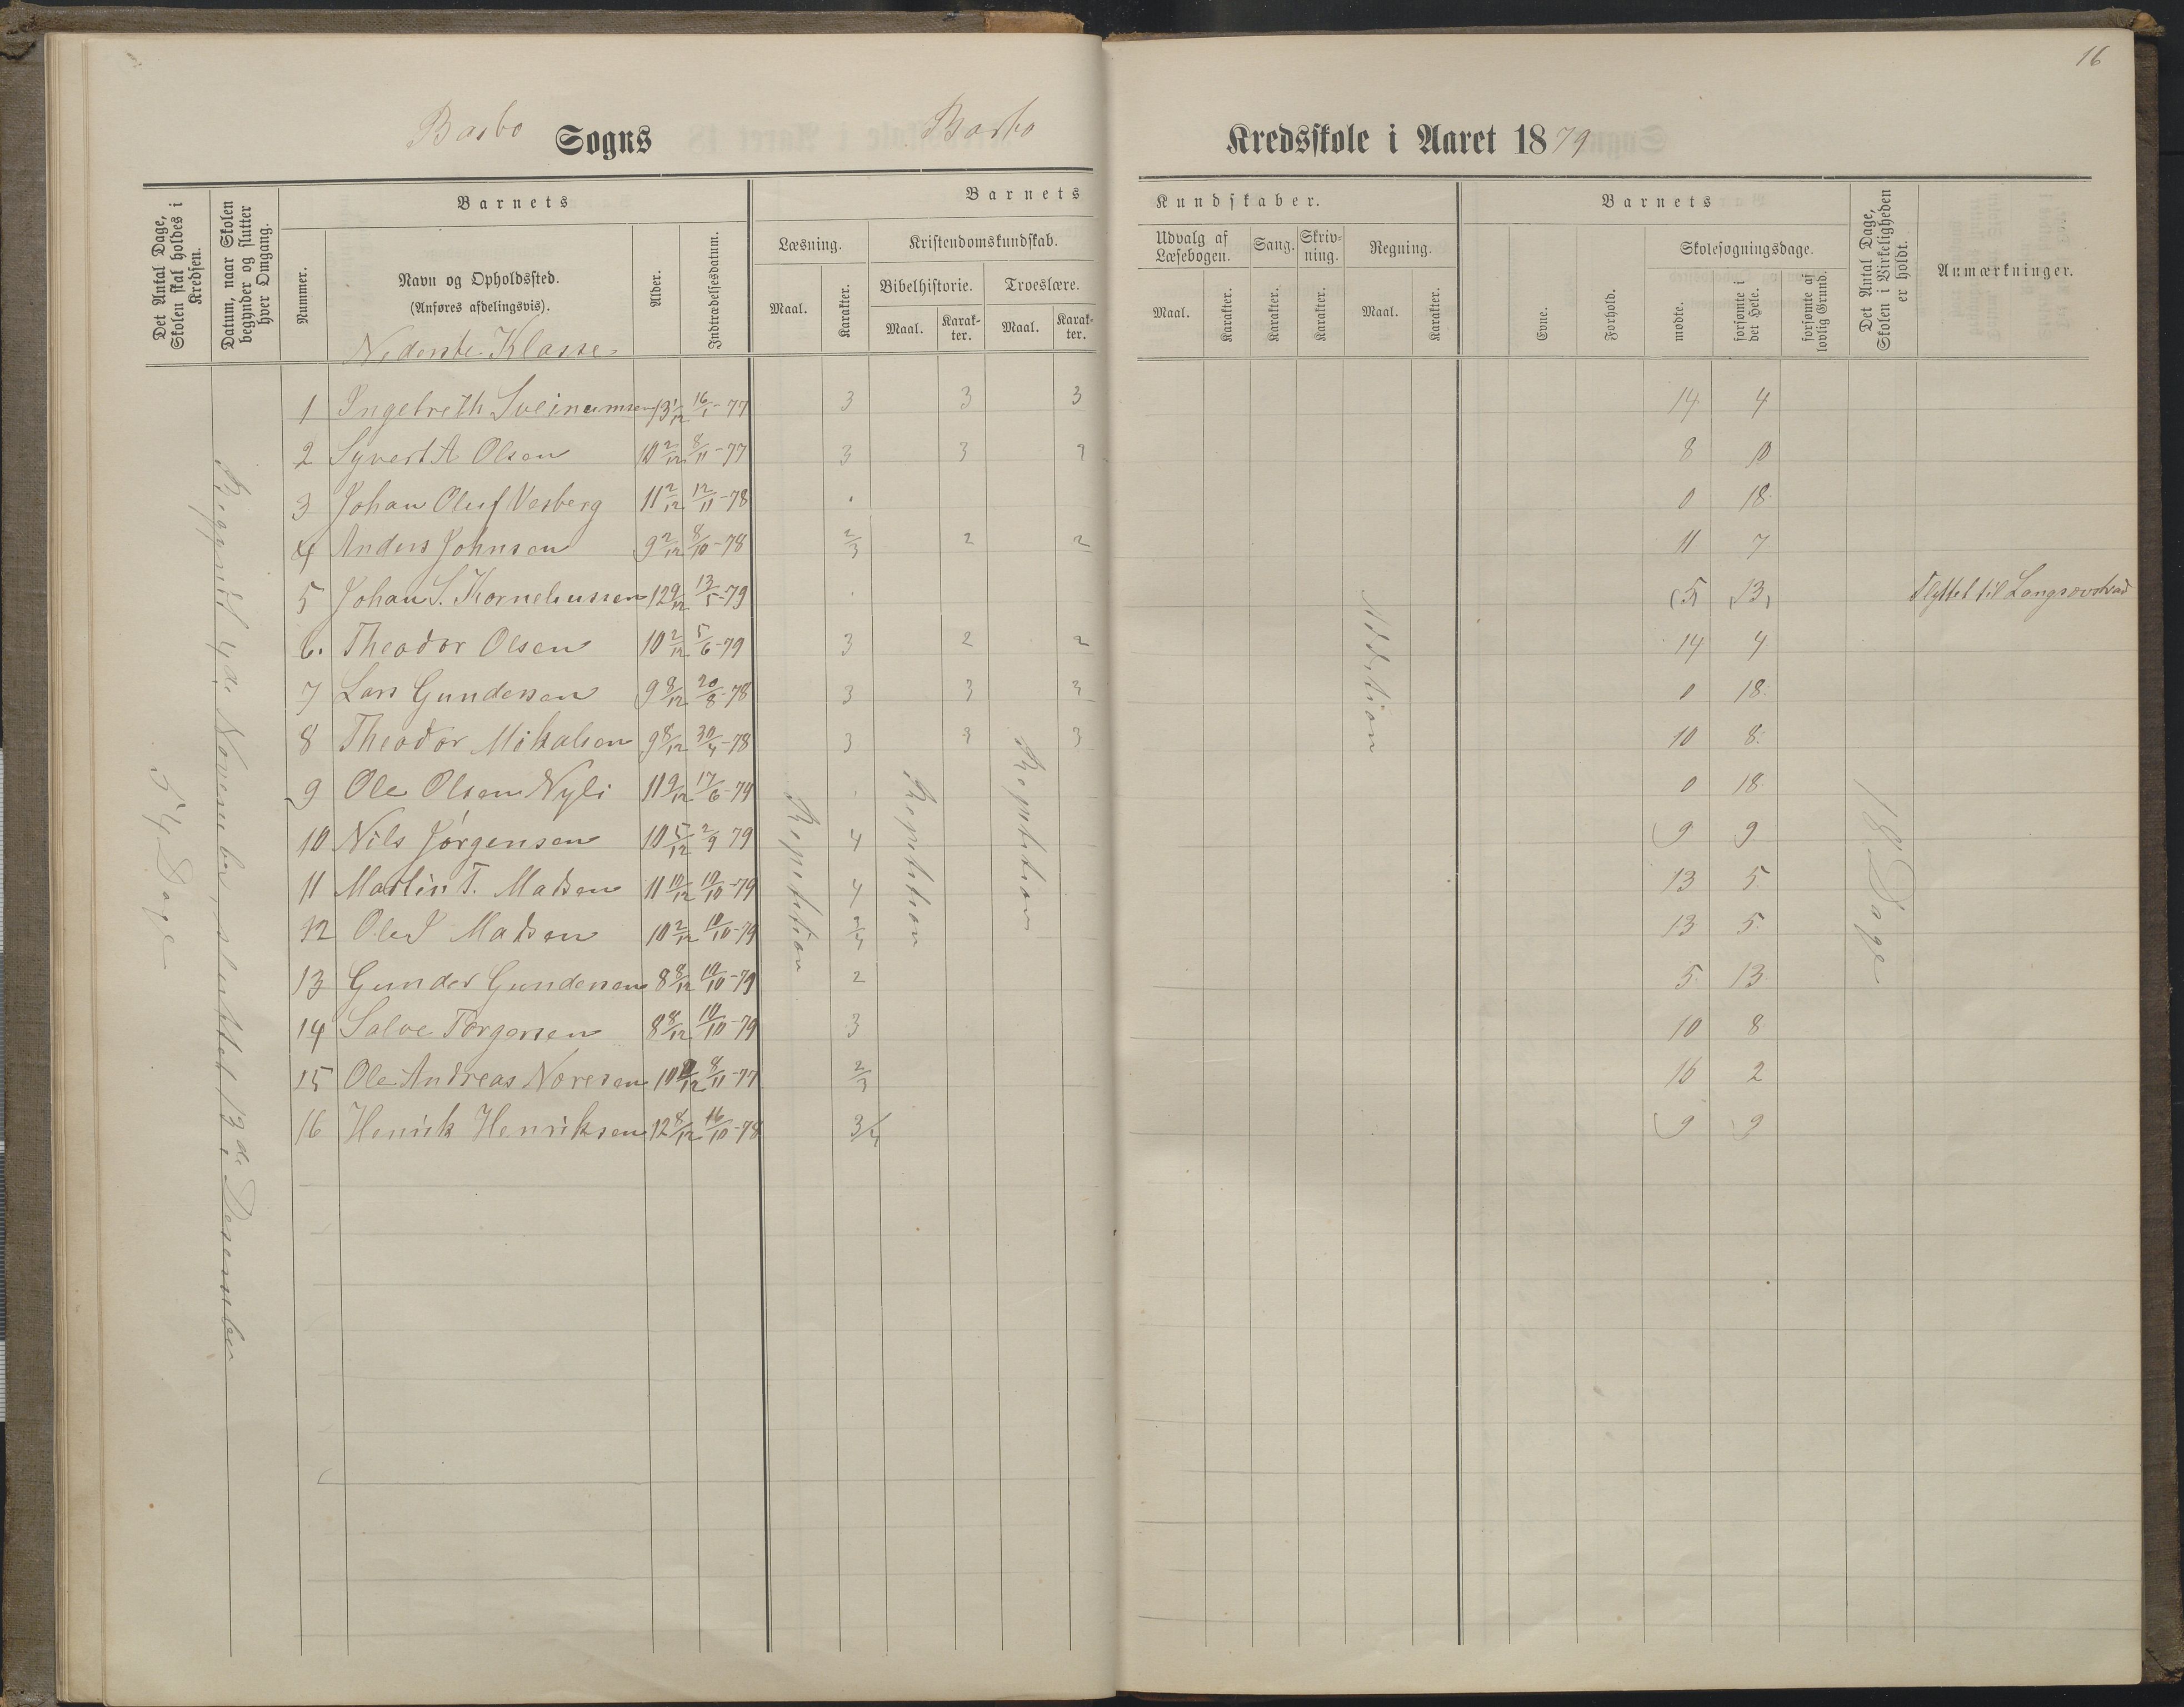 16
Barbo Sogns Barbo Kredsskole i Aaret 1879
Det Antal Dage, Skolen skal holdes i Kredsen.
Datum, naar Skolen begynder og slutter hver Omgang.
Barnets
Nummer.
Navn og Opholdssted.
(Anføres afdelingsvis).
Alder.
Indtrædelsesdatum.
Barnets Kundskaber.
Læsning.
Maal.
Karakter.
Kristendomskundskab.
Bibelhistorie.
Maal.
Karakter.
Troeslære.
Maal.
Karakter.
Udvalg af Læsebogen.
Maal.
Karakter.
Sang.
Karakter.
Skrivning.
Karakter.
Regning.
Maal.
Karakter.
Barnets
Evne.
Forhold.
Skolesøgningsdage.
mødte.
forsømte i det Hele.
forsømte af lovlig Grund.
Det Antal Dage, Skolen i Virkeligheden er holdt.
Anmærkninger.
Nederste Klasse
1 Ingebreth 16/1-77 3 3 3 14 4
2 Syvert A Olsen 10 2/12 8/11-77 3 3 8 10
3 Johan Oluf Vesberg 11 2/12 12/11-78 0 18
4 Anders Johnsen 9 2/12 8/10-78 2/3 2 2 11 7
5 Johan S. Korneliussen 12 9/12 13/5-79 (5) (13) Flyttet til
6. Theodor Olsen 10 2/12 5/6-79 3 2 2 14 4
7 Lars Gundersen 9 8/12 20/8-78 3 3 3 0 18
8 Theodor Mikalsen 9 8/12 30/4-78 3 3 3 10 8
9 Ole Olsen Nyli 11 9/12 17/6-79 0 18
10 Nils Jørgensen 10 5/12 2/9 79 4 9 9
11 Martin T. Madsen 11 10/12 10/10-79 4 13 5
12 Ole J Madsen 10 2/12 10/10-79 3/4 13 5
13 Gunder Gundersen 8 8/12 10/10-79 2 5 13
14 Salve Torgersen 8 8/12 10/10-79 3 10 8
15 Ole Andreas 8/11-77 2/3 16 2
16 Henrik Henriksen 12 8/12 16/10-78 3/4 9 9
54 Dage
Begyndt 4de November, sluttet 13de Desember
Repetition
Repetition
Repetition
Addition
18 Dage